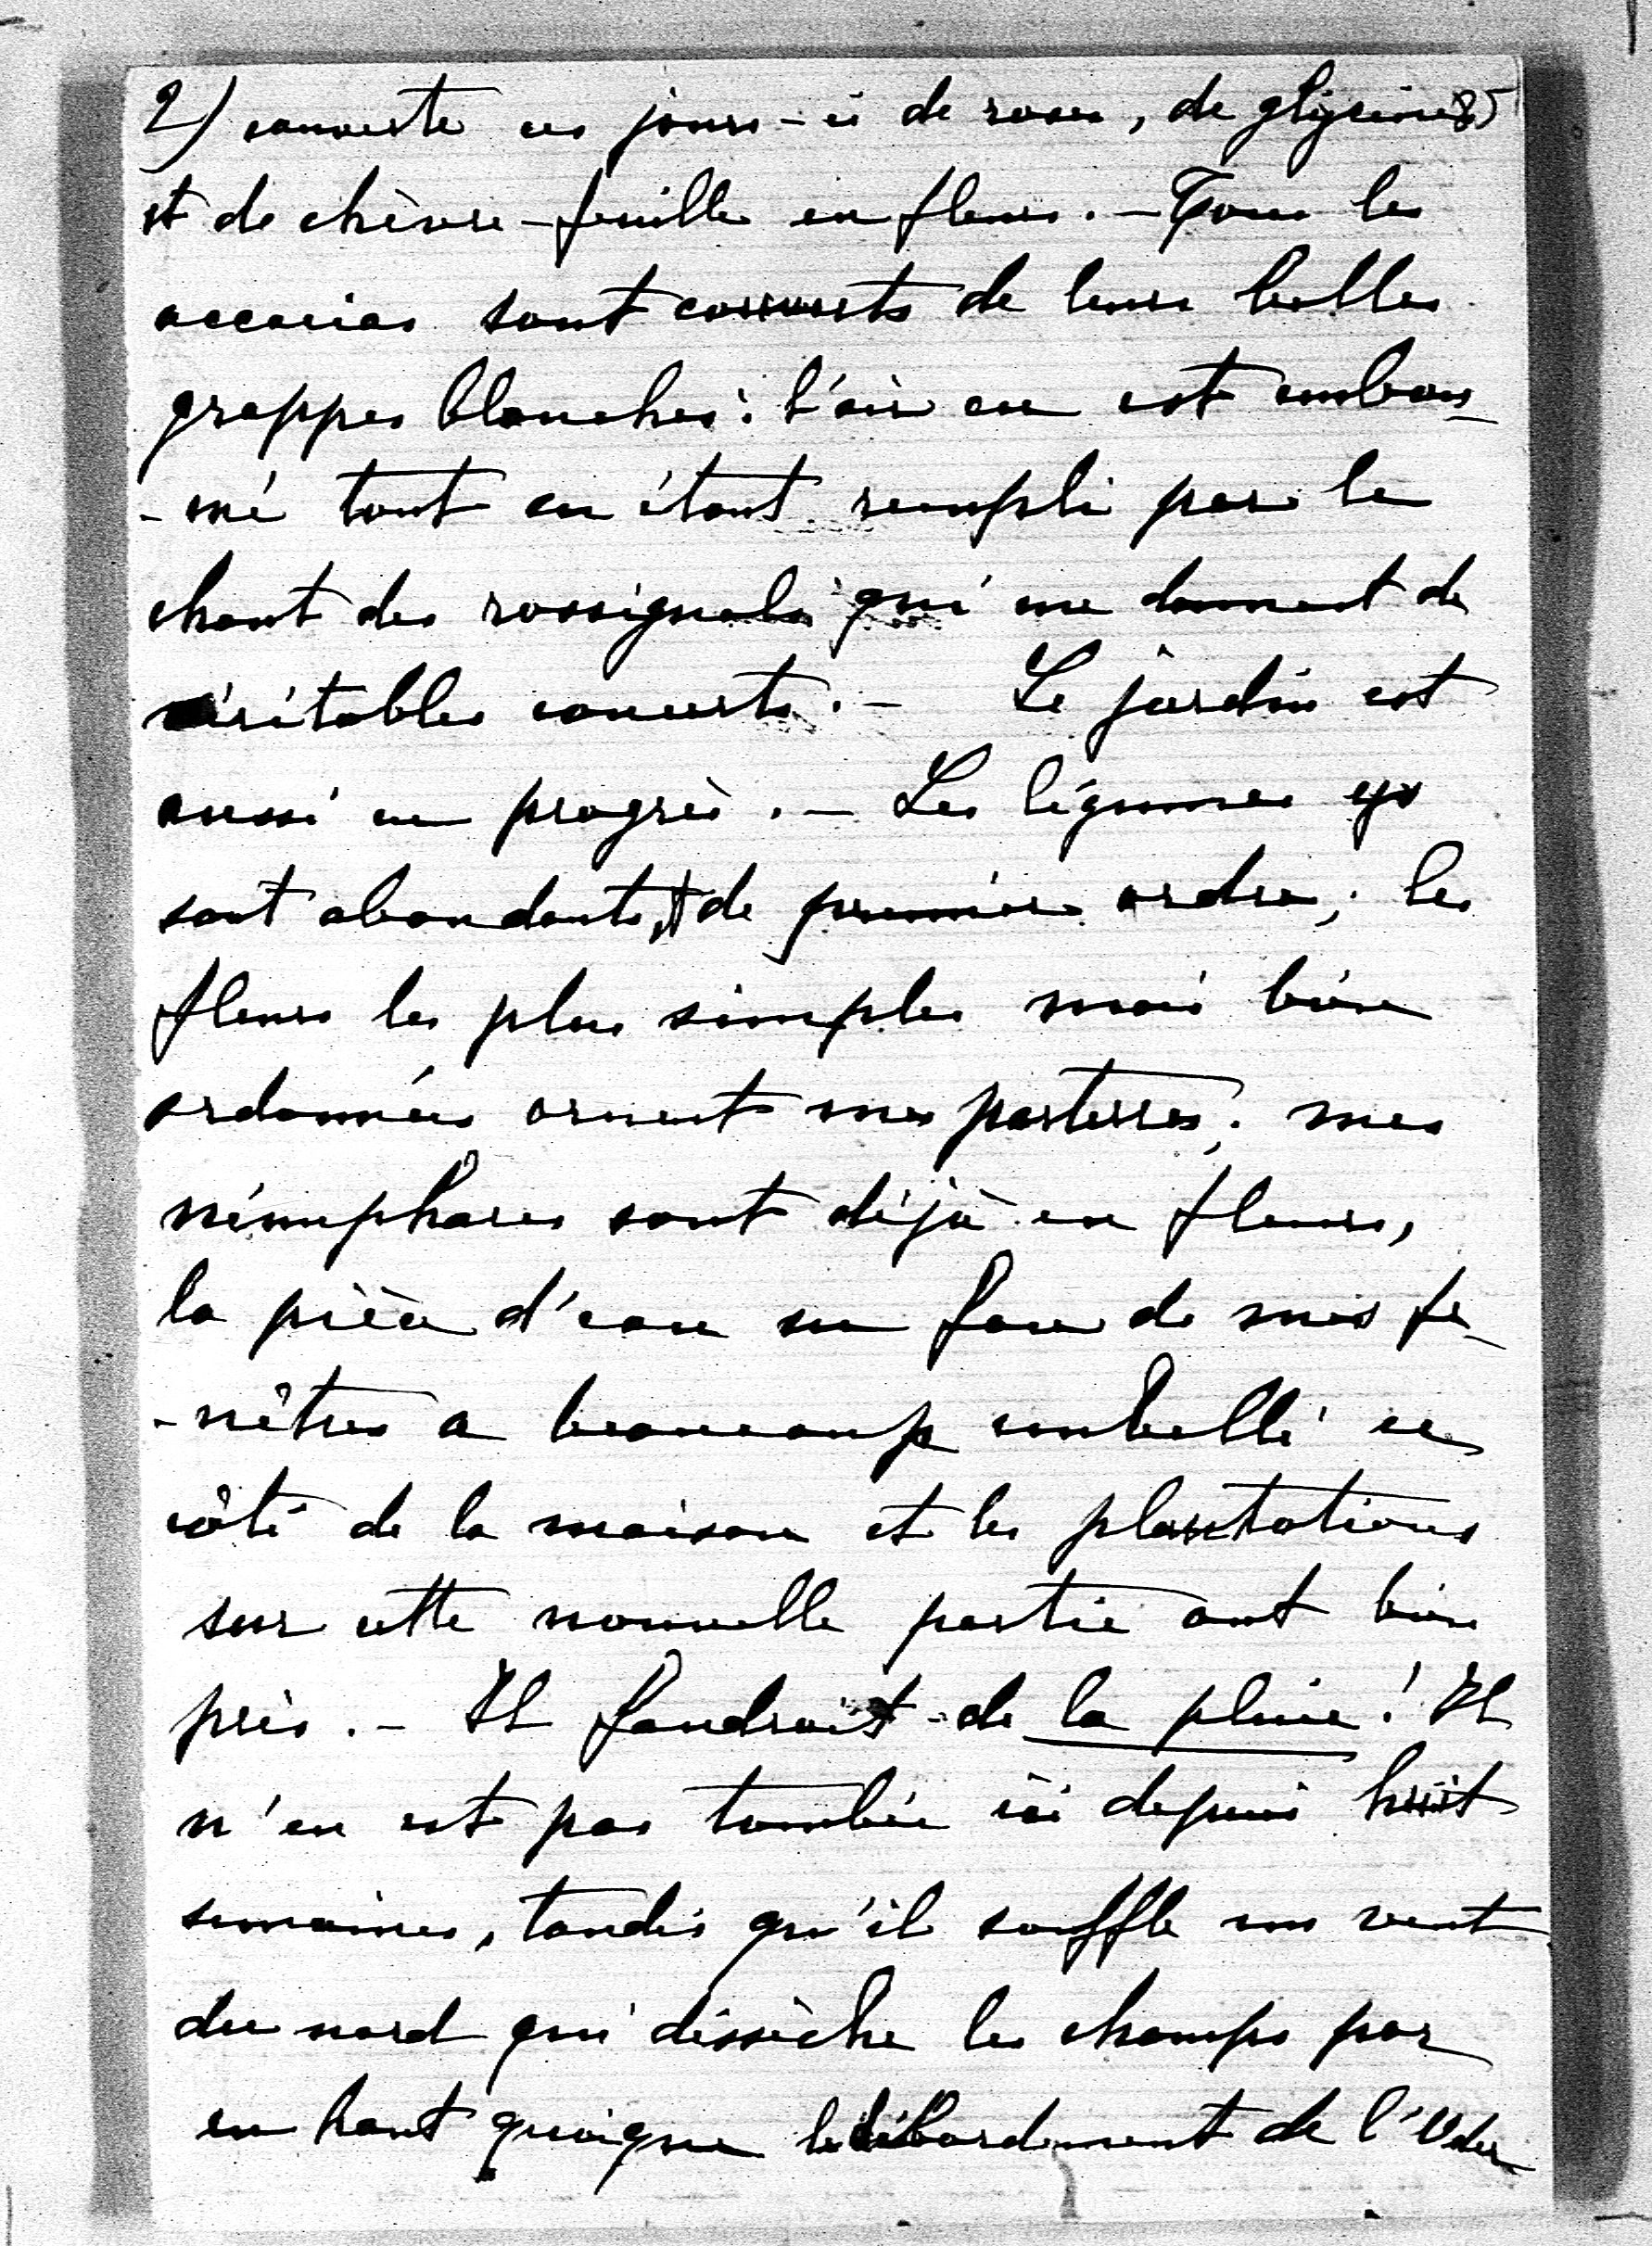 2) couverte ces jours-ci de roses, de glycines 85
et de chèvre-feuille en fleurs. - Tous les
accacias sont couverts de leurs belles
grappes blanches: l'air en est embau-
-mé tout en étant rempli par le
chant des rossignols qui me donnent de
véritables concerts. - Le jardin est
aussi en progrès. - Les légumes y
sont abondants et de premier ordre; les
fleurs les plus simples mais bien
ordonnées ornent mes parterres; mes
nénuphares sont déjà en fleurs,
la pièce d'eau en face de mes fe-
-nêtres a beaucoup embelli ce
côté de la maison et les plantations
sur cette nouvelle partie ont bien
pris. - Il faudrait de la pluie! Il
n'en est pas tombée ici depuis huit
semaines, tandis qu'il souffle un vent
du nord qui dissèche les champs par
en haut quoique le débordement de l'Oder